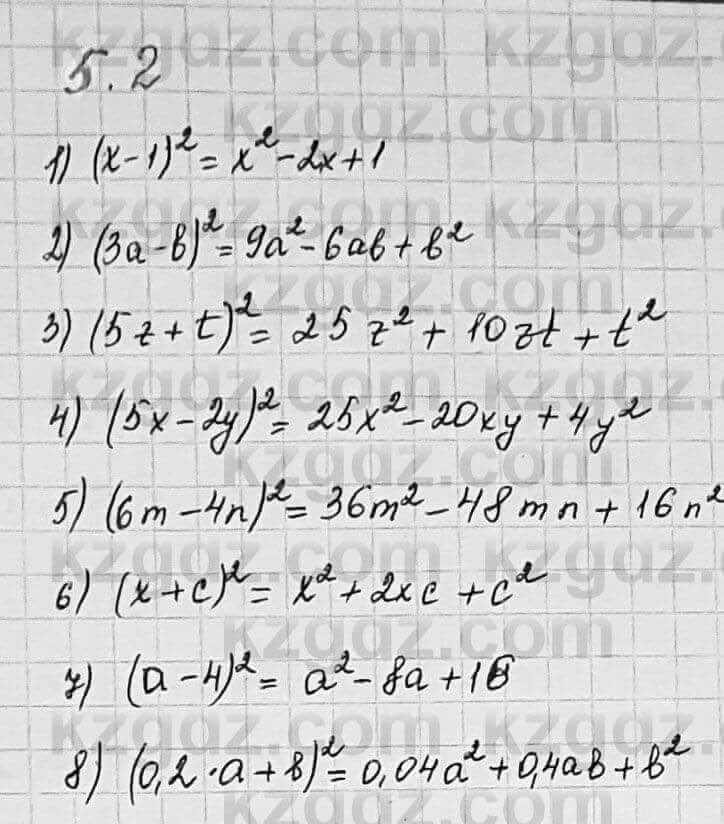 5.2
1) (x-1)² = x² - 2x + 1
2) (3a-b)² = 9a² - 6ab + b²
3) (5z+t)² = 25z² + 10zt + t²
4) (5x-2y)² = 25x² - 20xy + 4y²
5) (6m-4n)² = 36m² - 48mn + 16n²
6) (x+c)² = x² + 2xc + c²
7) (a-4)² = a² - 8a + 16
8) (0,2·a+b)² = 0,04a² + 0,4ab + b²
kzgdz.com